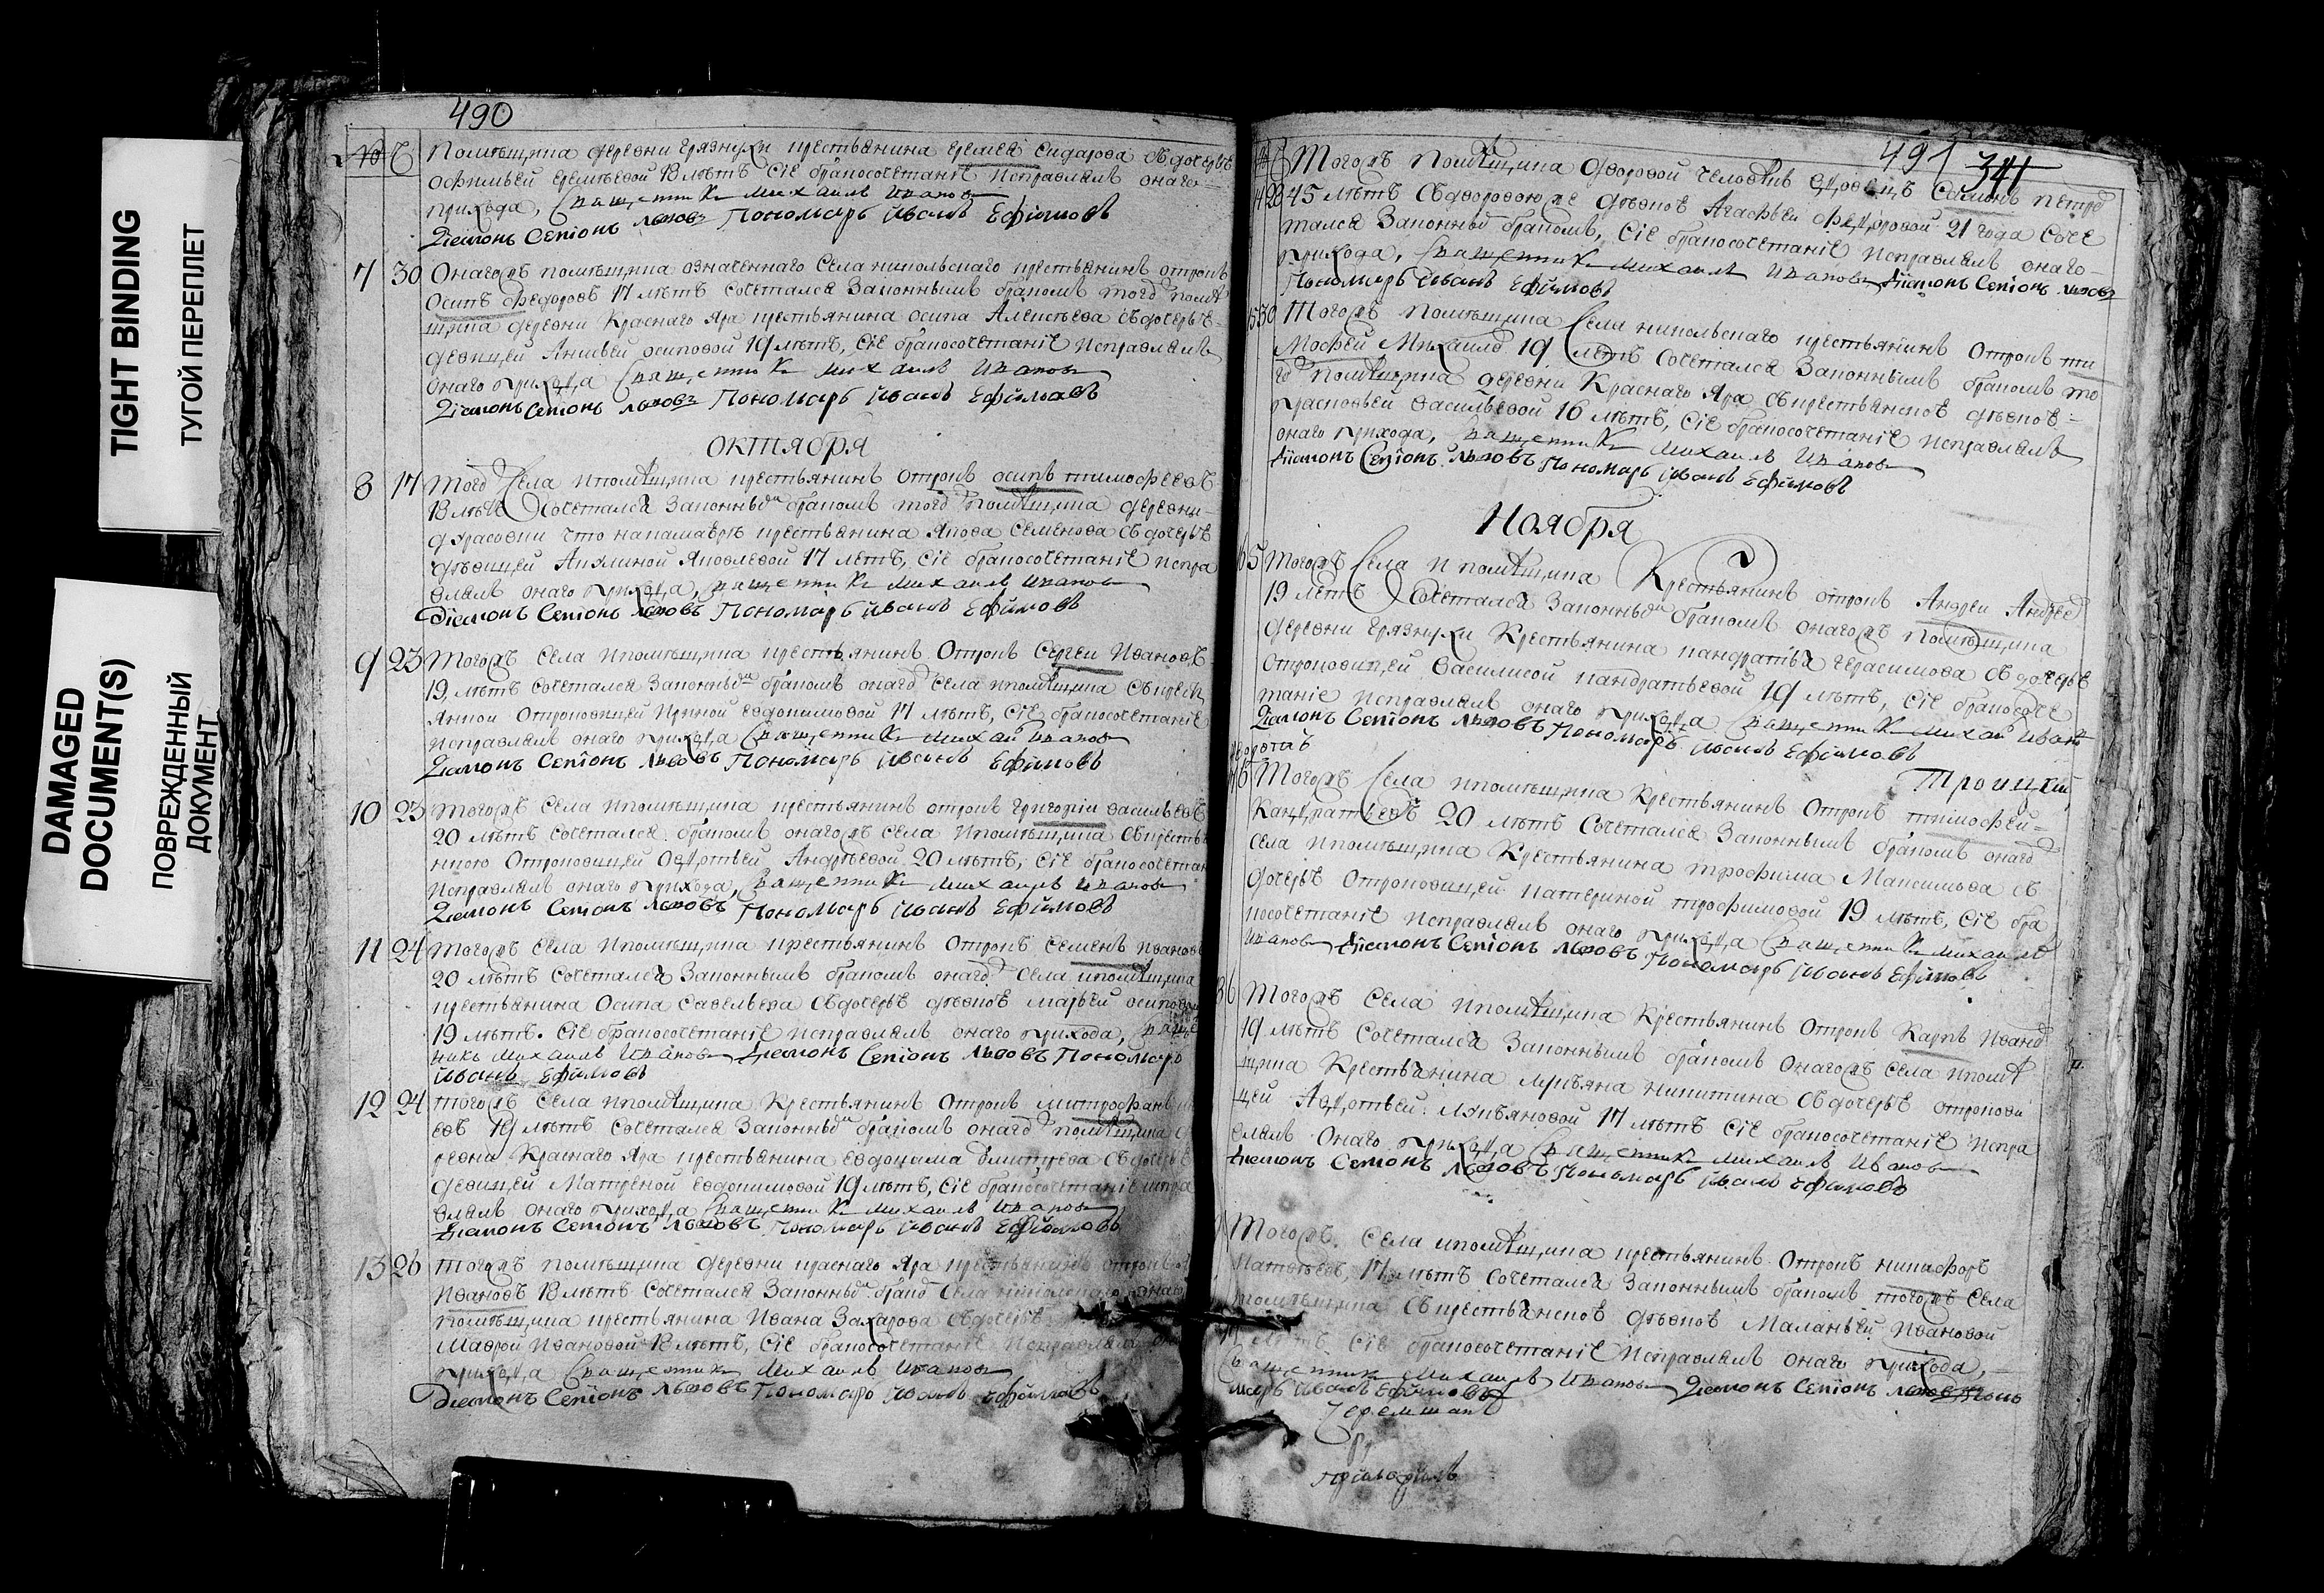 TIGHT BINDING
ТУГОЙ ПЕРЕПЛЕТ
DAMAGED
DOCUMENT(S)
ПОВРЕЖДЕННЫЙ
ДОКУМЕНТ
490
помѣщика деревни Грязнухи крестьянина Еремея Сидарова съ дочерью
Офимьей Еремѣевой 18 лѣтъ сiе бракосочетанiе исправлялъ онаго
прихода, священникъ Михаилъ Ивановъ
Дiаконъ Семiонъ Львовъ Пономарь Иванъ Ефимовъ
7 30 Онагожъ помѣщика означеннаго села никольскаго крестьянинъ отрокъ
Осипъ Федоровъ 17 лѣтъ сочетался законнымъ бракомъ тогож помѣ
щика деревни Краснаго Яра крестьянина Осипа Алексѣева съ дочерью
девицей Анисьей Осиповой 19 лѣтъ, сiе бракосочетанiе исправлялъ
онаго прихода священникъ Михаилъ Ивановъ
Дiаконъ Семiонъ Львовъ Пономарь Иванъ Ефимовъ
октября
8 17 Тогож села и помѣщика крестьянинъ отрокъ Осипъ Тимофеевъ
18 лѣтъ сочетался законным бракомъ тогож помѣщика деревни
что крестьянина Якова Семенова съ дочерью
дѣвицей Акилиной Яковлевой 17 лѣтъ, сiе бракосочетанiе испра
влялъ онаго прихода, священникъ Михаилъ Ивановъ
Дiаконъ Семiонъ Львовъ Пономарь Иванъ Ефимовъ
9 23 Тогожъ села и помѣщика крестьянинъ отрокъ Сергеи Ивановъ
19, лѣтъ сочетался законным бракомъ онагож села и помѣщика съ крест
янкой отроковицей Ириной Евдокимовой 17 лѣтъ, сiе бракосочетанiе
исправлялъ онаго прихода священникъ Михаил Ивановъ
Дiаконъ Семiонъ Львовъ Пономарь Иванъ Ефимовъ
10 23 Тогожъ села и помѣщика крестьянинъ отрокъ Григорiи Васильевъ
20 лѣтъ сочетался бракомъ онагожъ села и помѣщика съ крестья
нкою отроковицей Авдотьей Андрѣевой 20 лѣтъ, сiе бракосочетан
исправлялъ онаго прихода, священникъ Михаилъ Ивановъ
Дiаконъ Семiонъ Львовъ Пономарь Иванъ Ефимовъ
11 24 Тогожъ села и помѣщика крестьянинъ отрокъ Семенъ Ивановъ
20 лѣтъ сочетался законнымъ бракомъ онагож села и помѣщика
крестьянина Осипа Савельева съ дочерью дѣвкою Марьей Осиповой
19 лѣтъ. сiе бракосочетанiе исправлялъ онаго прихода, священ
никъ Михаилъ Ивановъ Дiаконъ Семiонъ Львовъ Пономарь
Иванъ Ефимовъ
12 24 Тогожъ села и помѣщика Крестьянинъ отрокъ Митрофанъ
евъ 19 лѣтъ сочетался законным бракомъ онагож помѣщика
ревни Краснаго Яра крестьянина Евдокима съ дочерью
девицей Матреной Евдокимовой 19 лѣтъ, сiе бракосочетанiе испра
влялъ онаго прихода священникъ Михаилъ Ивановъ
Дiаконъ Семiонъ Львовъ Пономарь Иванъ Ефимовъ
13 26 Тогожъ помѣщика деревни краснаго Яра крестьянинъ отрокъ
Ивановъ 18 лѣтъ сочетался законным брако села никольскаго онаго
помѣщика крестьянина Ивана Захарова съ дочерью
Маврой Ивановой 18 лѣтъ, сiе бракосочетанiе исправлялъ
прихода священникъ Михаилъ Ивановъ
Дiаконъ Семiонъ Львовъ Пономарь Иванъ Ефимовъ
491 341
Тогожъ помѣщика дворовой человѣкъ вдовецъ Петро
28 45 лѣтъ съ дворовою же дѣвкою Агафьей Федоровой 21 года соче
тался законным бракомъ, сiе бракосочетанiе исправлялъ онаго
прихода, священникъ Михаилъ Ивановъ Дiаконъ Семiонъ Львовъ
Пономарь Иванъ Ефимовъ
30 Тогожъ помѣщика села никольскаго крестьянинъ отрокъ Ти
мофей Михаило 19 лѣтъ сочетался законнымъ бракомъ то
гож помѣщика деревни Краснаго Яра съ крестьянскою дѣвкою
Прасковьей Васильевой 16 лѣтъ, сiе бракосочетанiе исправлялъ
онаго прихода, священникъ Михаилъ Ивановъ
Дiаконъ Семiонъ Львовъ Пономарь Иванъ Ефимовъ
Ноября
5 Тогожъ села и помѣщика Крестьянинъ отрокъ Андреи Андрее
19 лѣтъ сочетался законным бракомъ онагожъ помѣщика
деревни Грязнухи Крестьянина Кандратья Герасимова съ дочерью
отроковицей Василисой Кандратьевой 19 лѣтъ, сiе бракосоче
танiе исправлялъ онаго прихода священникъ Михаи Ивано
Дiаконъ Семiонъ Львовъ Пономарь Иванъ Ефимовъ
Троицкiй
Тогожъ села и помѣщика Крестьянинъ отрокъ Тимофей
Кандратьевъ 20 лѣтъ сочетался законнымъ бракомъ онагож
села и помѣщика Крестьянина Трофима Максимова съ
дочерью отроковицей Катериной Трофимовой 19 лѣтъ, сiе бра
косочетанiе исправлялъ онаго прихода священникъ Михаилъ
Ивановъ Дiаконъ Семiонъ Львовъ Пономарь Иванъ Ефимовъ
6 Тогожъ села и помѣщика Крестьянинъ отрокъ Карпъ Ивано
19 лѣтъ сочетался законнымъ бракомъ онагожъ села и помѣ
щика Крестьянина Лукьяна Никитина съ дочерью отрокови
цей Авдотьей Лукьяновой 17 лѣтъ сiе бракосочетанiе испра
влялъ онаго прихода священникъ Михаилъ Ивановъ
Дiаконъ Семiонъ Львовъ Пономарь Иванъ Ефимовъ
Тогожъ села и помѣщика крестьянинъ отрокъ Никифоръ
Матвѣевъ, 17 лѣтъ сочетался законнымъ бракомъ тогожъ села
помѣщика съ крестьянскою дѣвкою Маланьей Ивановой
лѣтъ сiе бракосочетанiе исправлялъ онаго прихода,
священникъ Михаилъ Ивановъ Дiаконъ Семiонъ Львовъ Поно
марь Иванъ Ефимовъ
Черемшанъ